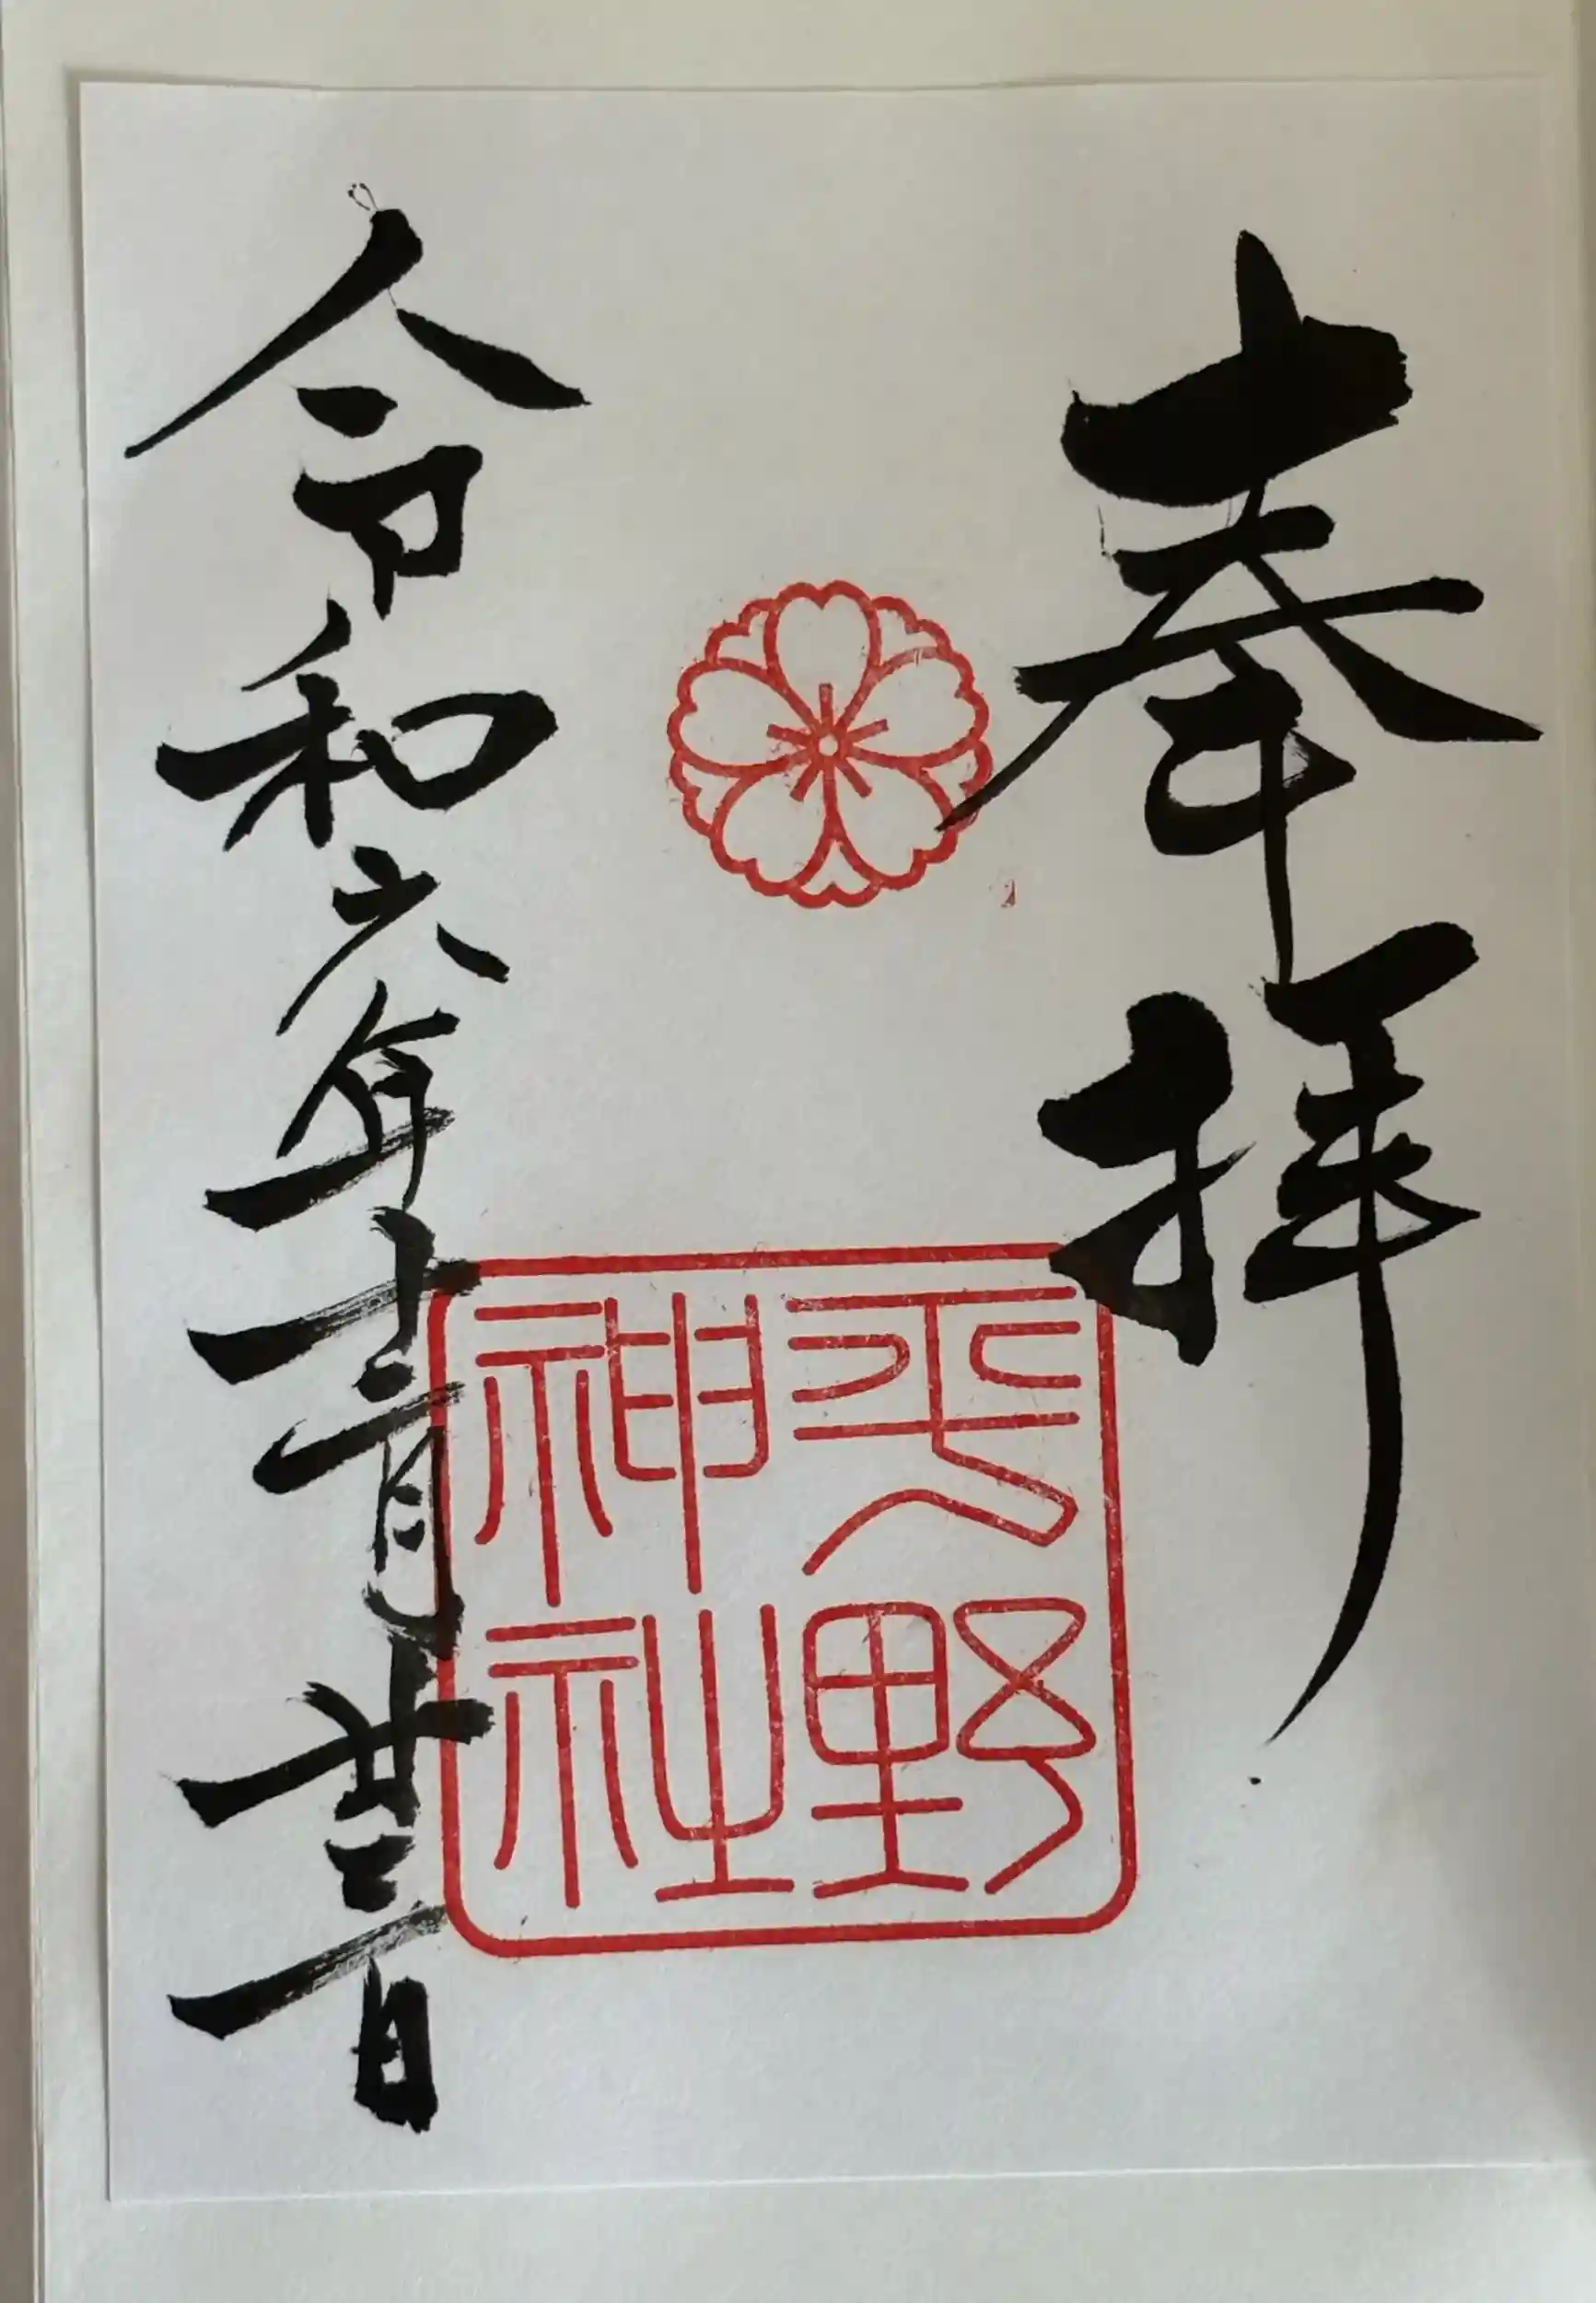 奉拝
平野
神社
令和六年十二月廿三日